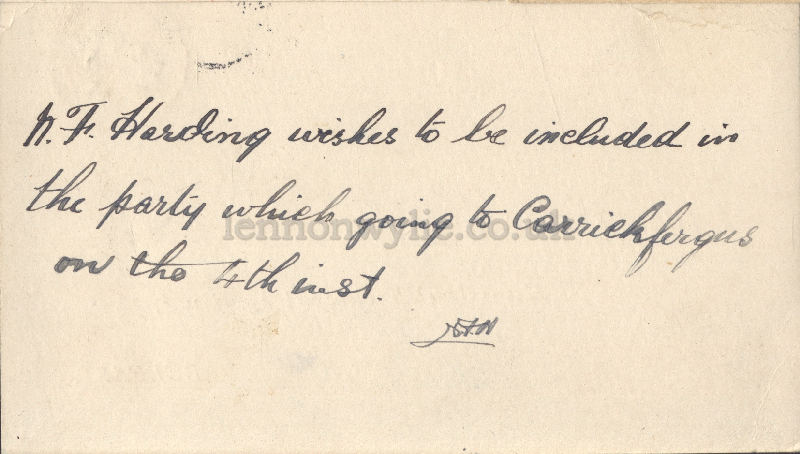 N. F. Harding wishes to be included in
the party which going to Carrickfergus
lennonwylie.co.uk
on the 4th inst.